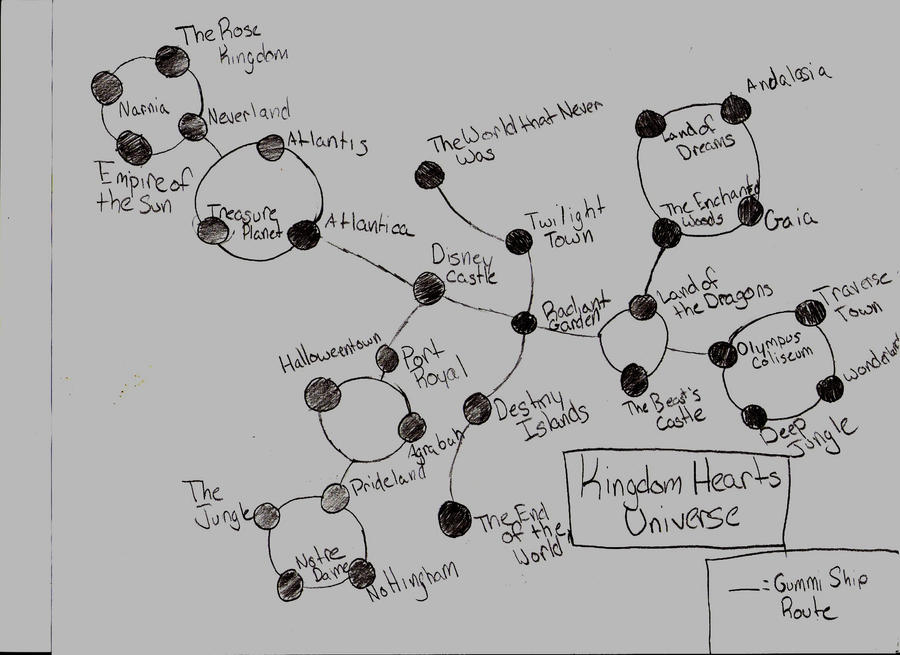 The Rose
Kingdom
Narnia
Neverland
Empire of
the Sun
Atlantis
Treasure
Planet
Atlantica
The World that Never
Was
Twilight
Town
Disney
Castle
Radiant
Garden
Andalasia
Land of
Dreams
The Enchanted
Woods
Gaia
Land of
the Dragons
Traverse
Town
Olympus
Coliseum
Wonderland
Deep
Jungle
The Beast's
Castle
Halloweentown
Port
Royal
Agrabah
Destiny
Islands
Prideland
The
Jungle
Notre
Dame
Nottingham
The End
of the
World
Kingdom Hearts
Universe
—:Gummi Ship
Route